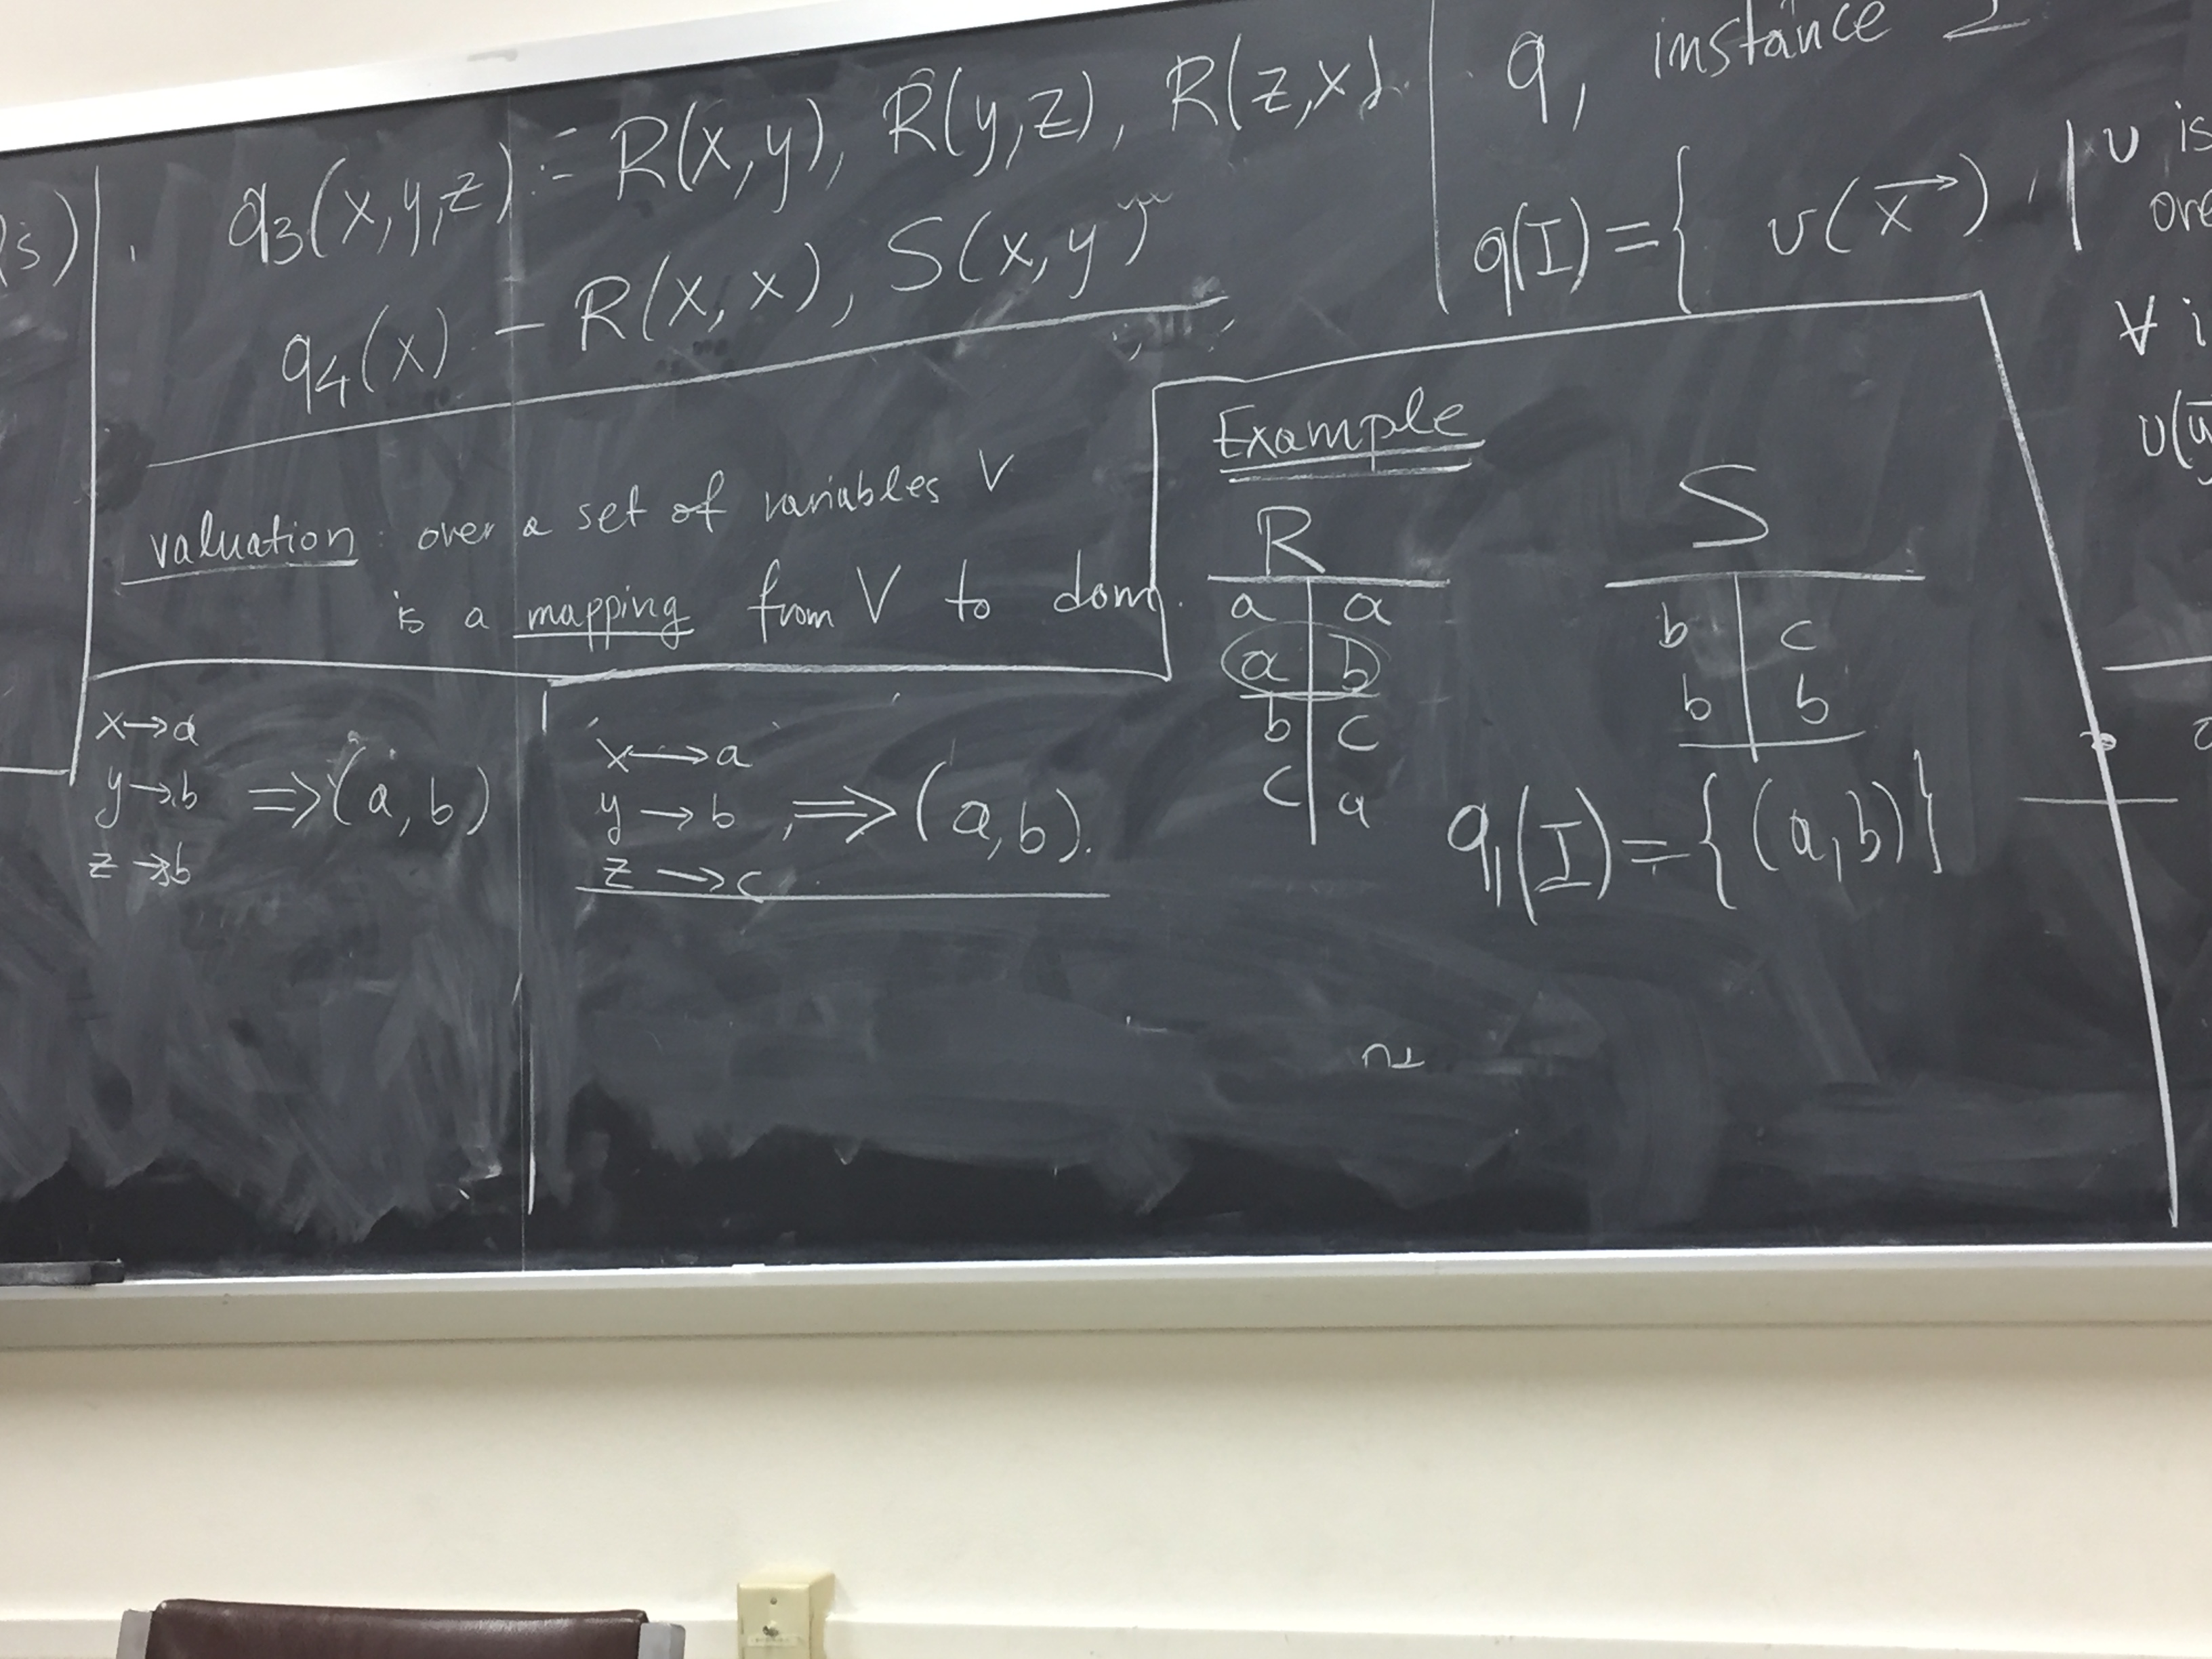 s)
q3(x,y,z) :- R(x,y), R(y,z), R(z,x).
q4(x) - R(x,x), S(x,y)
valuation: over a set of variables V
is a mapping from V to dom.
x→a
y→b ⇒ (a,b)
z→b
x→a
y→b, ⇒ (a,b).
z→c
q, instance
q(I) = { v(x⃗) | v is
ove
∀ i
v(
Example
R
a | a
a | b
b | c
c | a
S
b | c
b | b
q1(I) = {(a,b)}